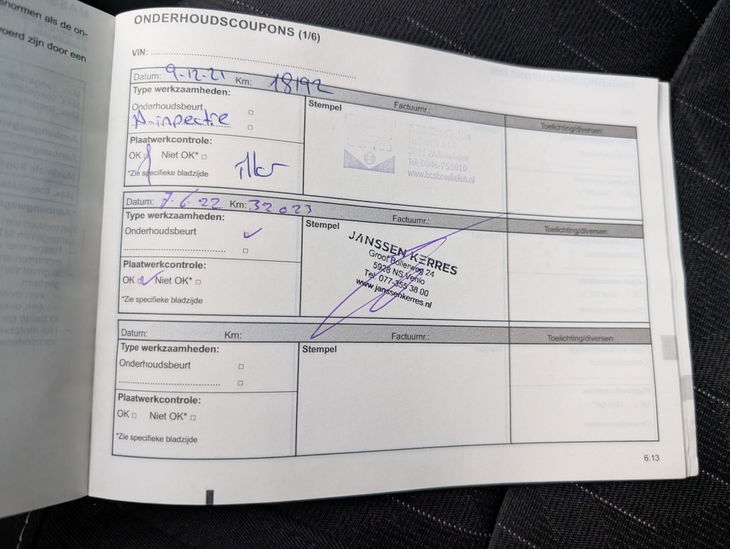 normen als de on-
voerd zijn door een
ONDERHOUDSCOUPONS (1/6)
VIN:
Datum: 9-12-21 Km: 18192
Type werkzaamheden:
Stempel
Factuurnr.:
Toelichting/diversen
Onderhoudsbeurt
A-inpectie
Plaatwerkcontrole:
OK Niet OK*
*Zie specifieke bladzijde
Tel. 0346-
www.bcsbreukelen.nl
Datum: 7-6-22 Km: 32023
Type werkzaamheden:
Stempel
Factuurnr.:
Toelichting/diversen
Onderhoudsbeurt
JANSSEN KERRES
Groot Bollerweg 24
5928 NS Venlo
Tel. 077-355 38 00
www.janssenkerres.nl
Plaatwerkcontrole:
OK Niet OK*
*Zie specifieke bladzijde
Datum: Km:
Type werkzaamheden:
Stempel
Factuurnr.:
Toelichting/diversen
Onderhoudsbeurt
Plaatwerkcontrole:
OK Niet OK*
*Zie specifieke bladzijde
6.13